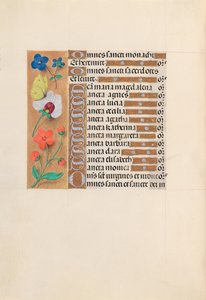 Omnes sancti monachi
Et heremite
Omnes sancti sacerdotes
Et leuite
Sancta maria magdalena
Sancta agnes
Sancta lucia
Sancta cecilia
Sancta agatha
Sancta katherina
Sancta margareta
Sancta barbara
Sancta clara
Sancta elisabeth
Omnes sancte virgines et
Omnes sancti et sancte dei